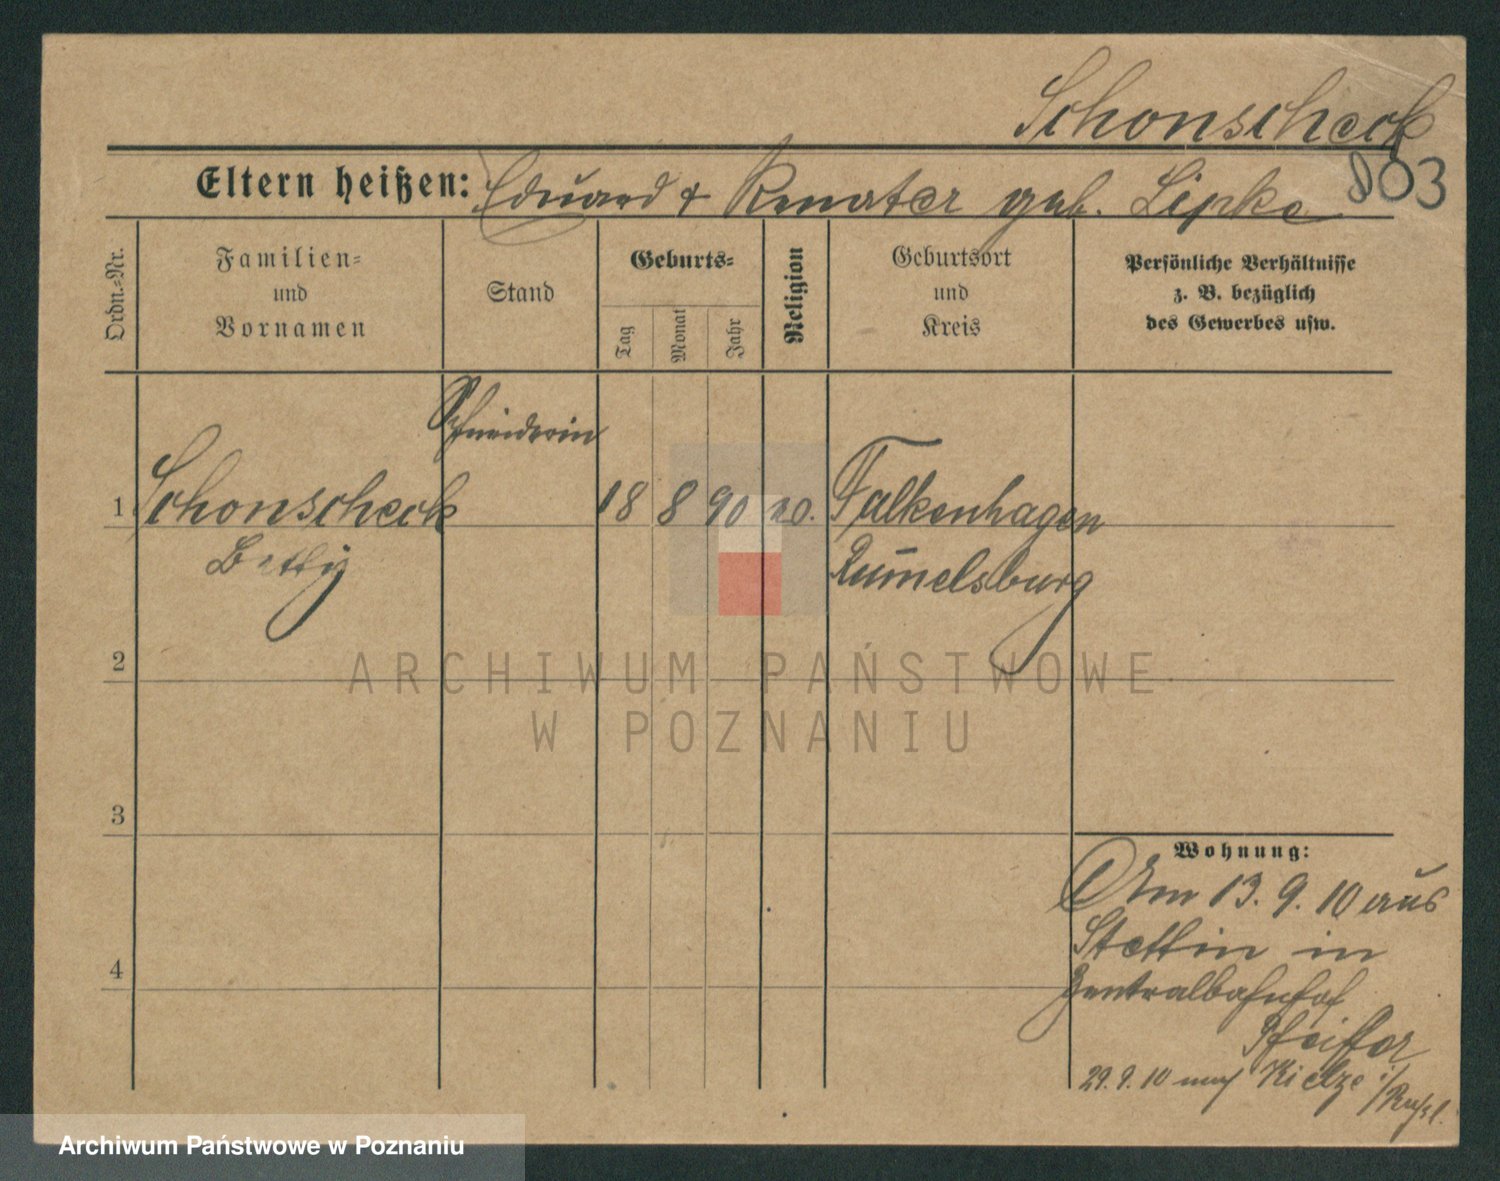 Schonscheck
803
Eltern heißen: Eduard & Renater geb. Lipke
Ordn.-Nr.
Familien-
und
Vornamen
Stand
Geburts-
Tag
Monat
Jahr
Religion
Geburtsort
und
Kreis
Persönliche Verhältnisse
z. B. bezüglich
des Gewerbes usw.
Schneiderin
1 Schonscheck 18 8 90 Falkenhagen
Betty Rum̄elsburg
2
3
4
Wohnung:
Am 13. 9. 10 aus
Stettin in
Zentralbahnhof
Pfeiffer
29. 9. 10 nach Kielze i/Rußl.
ARCHIWUM PAŃSTWOWE
W POZNANIU
Archiwum Państwowe w Poznaniu